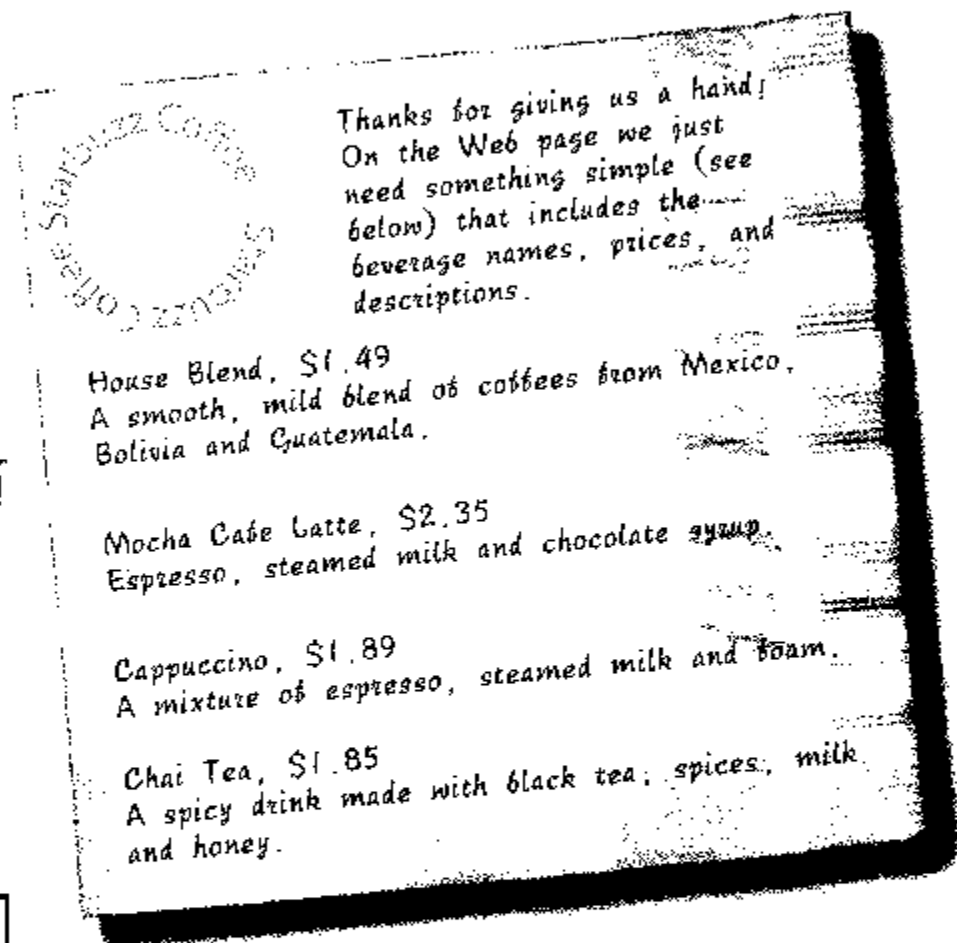 Starbuzz Coffee Starbuzz Coffee
Thanks for giving us a hand!
On the Web page we just
need something simple (see
below) that includes the
beverage names, prices, and
descriptions.
House Blend, $1.49
A smooth, mild blend of coffees from Mexico,
Bolivia and Guatemala.
Mocha Cafe Latte, $2.35
Espresso, steamed milk and chocolate syrup.
Cappuccino, $1.89
A mixture of espresso, steamed milk and foam.
Chai Tea, $1.85
A spicy drink made with black tea, spices, milk
and honey.